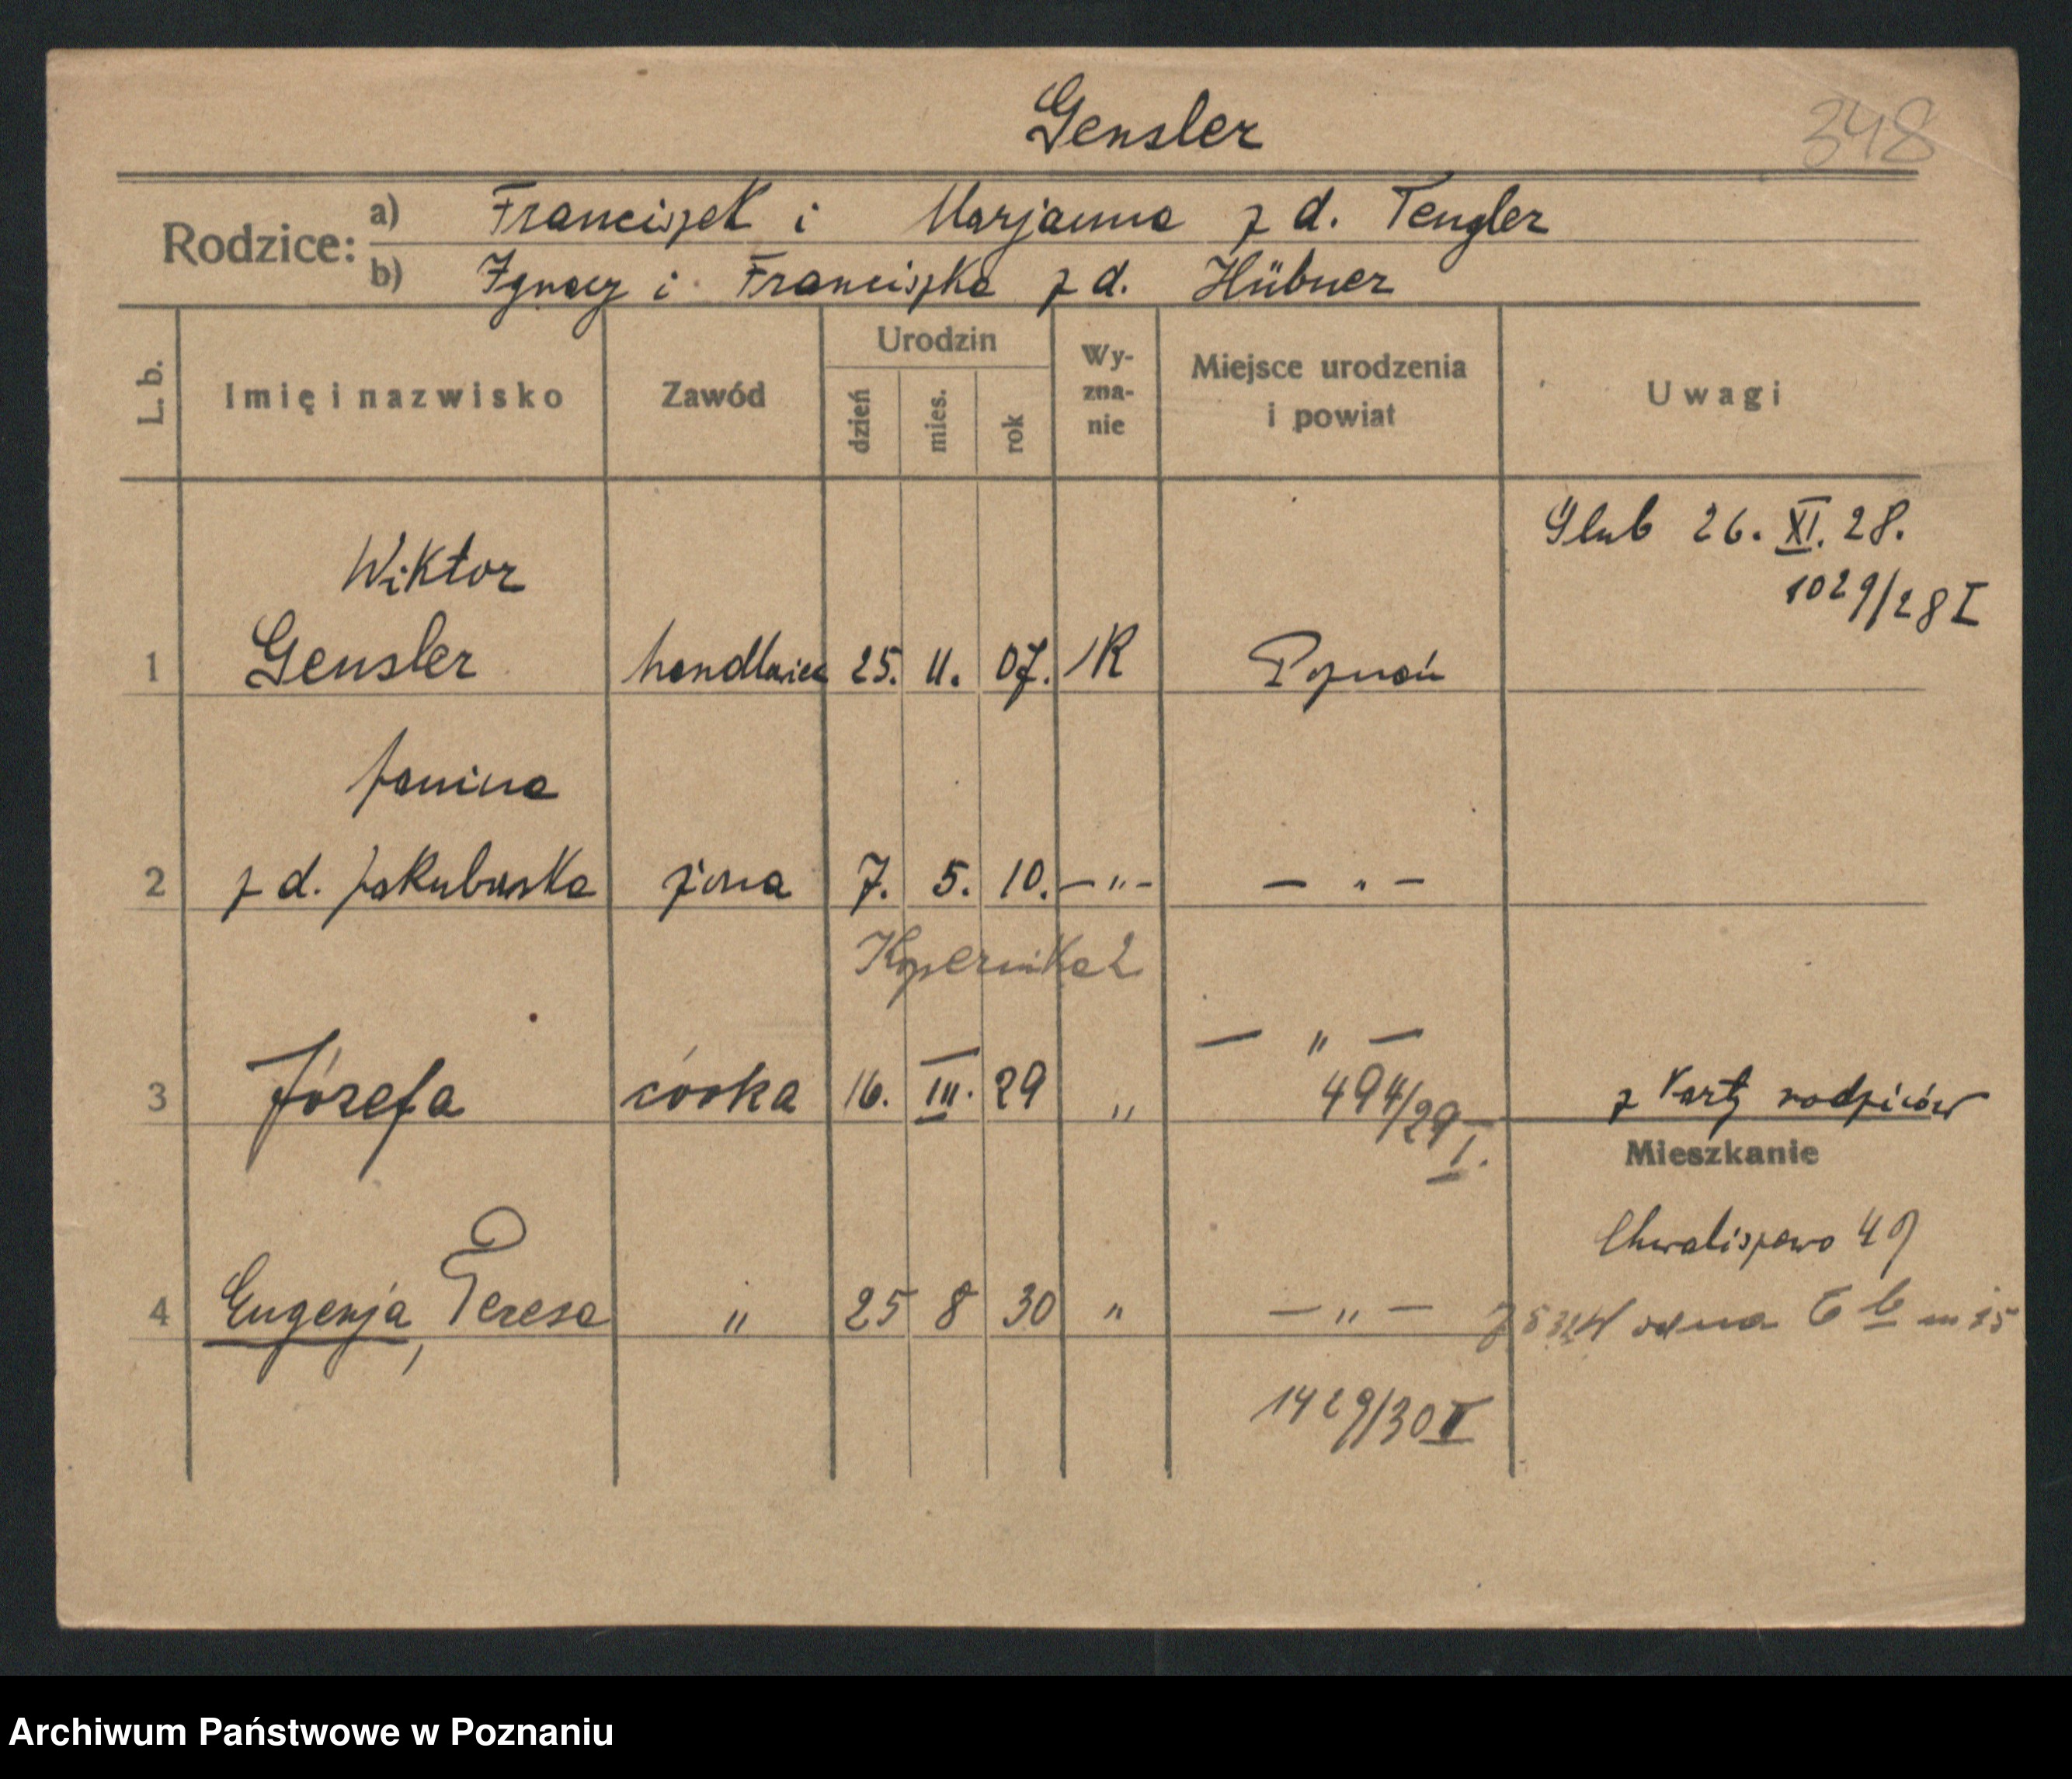 Gensler
348
Rodzice: a) Franciszek i Marjanna z d. Tengler
b) Ignacy i Franciszka z d. Hübner
L. b. Imię i nazwisko Zawód Urodzin dzień mies. rok Wy-zna-nie Miejsce urodzenia i powiat Uwagi
Ślub 26. XI. 28.
1029/28 I
Wiktor
1 Gensler handlowiec 25. 11. 07. RK Poznań
Janina
2 z d. Jakubowska żona 7. 5. 10. – " – – " –
Kopernika 2
– " –
3 Józefa córka 16. III. 29 " 494/29 I. z karty rodziców
Mieszkanie
Chwaliszewo 49
4 Eugenja, Teresa " 25 8 30 " – " –
Wodna 6 b m 25
1429/30 I
Archiwum Państwowe w Poznaniu